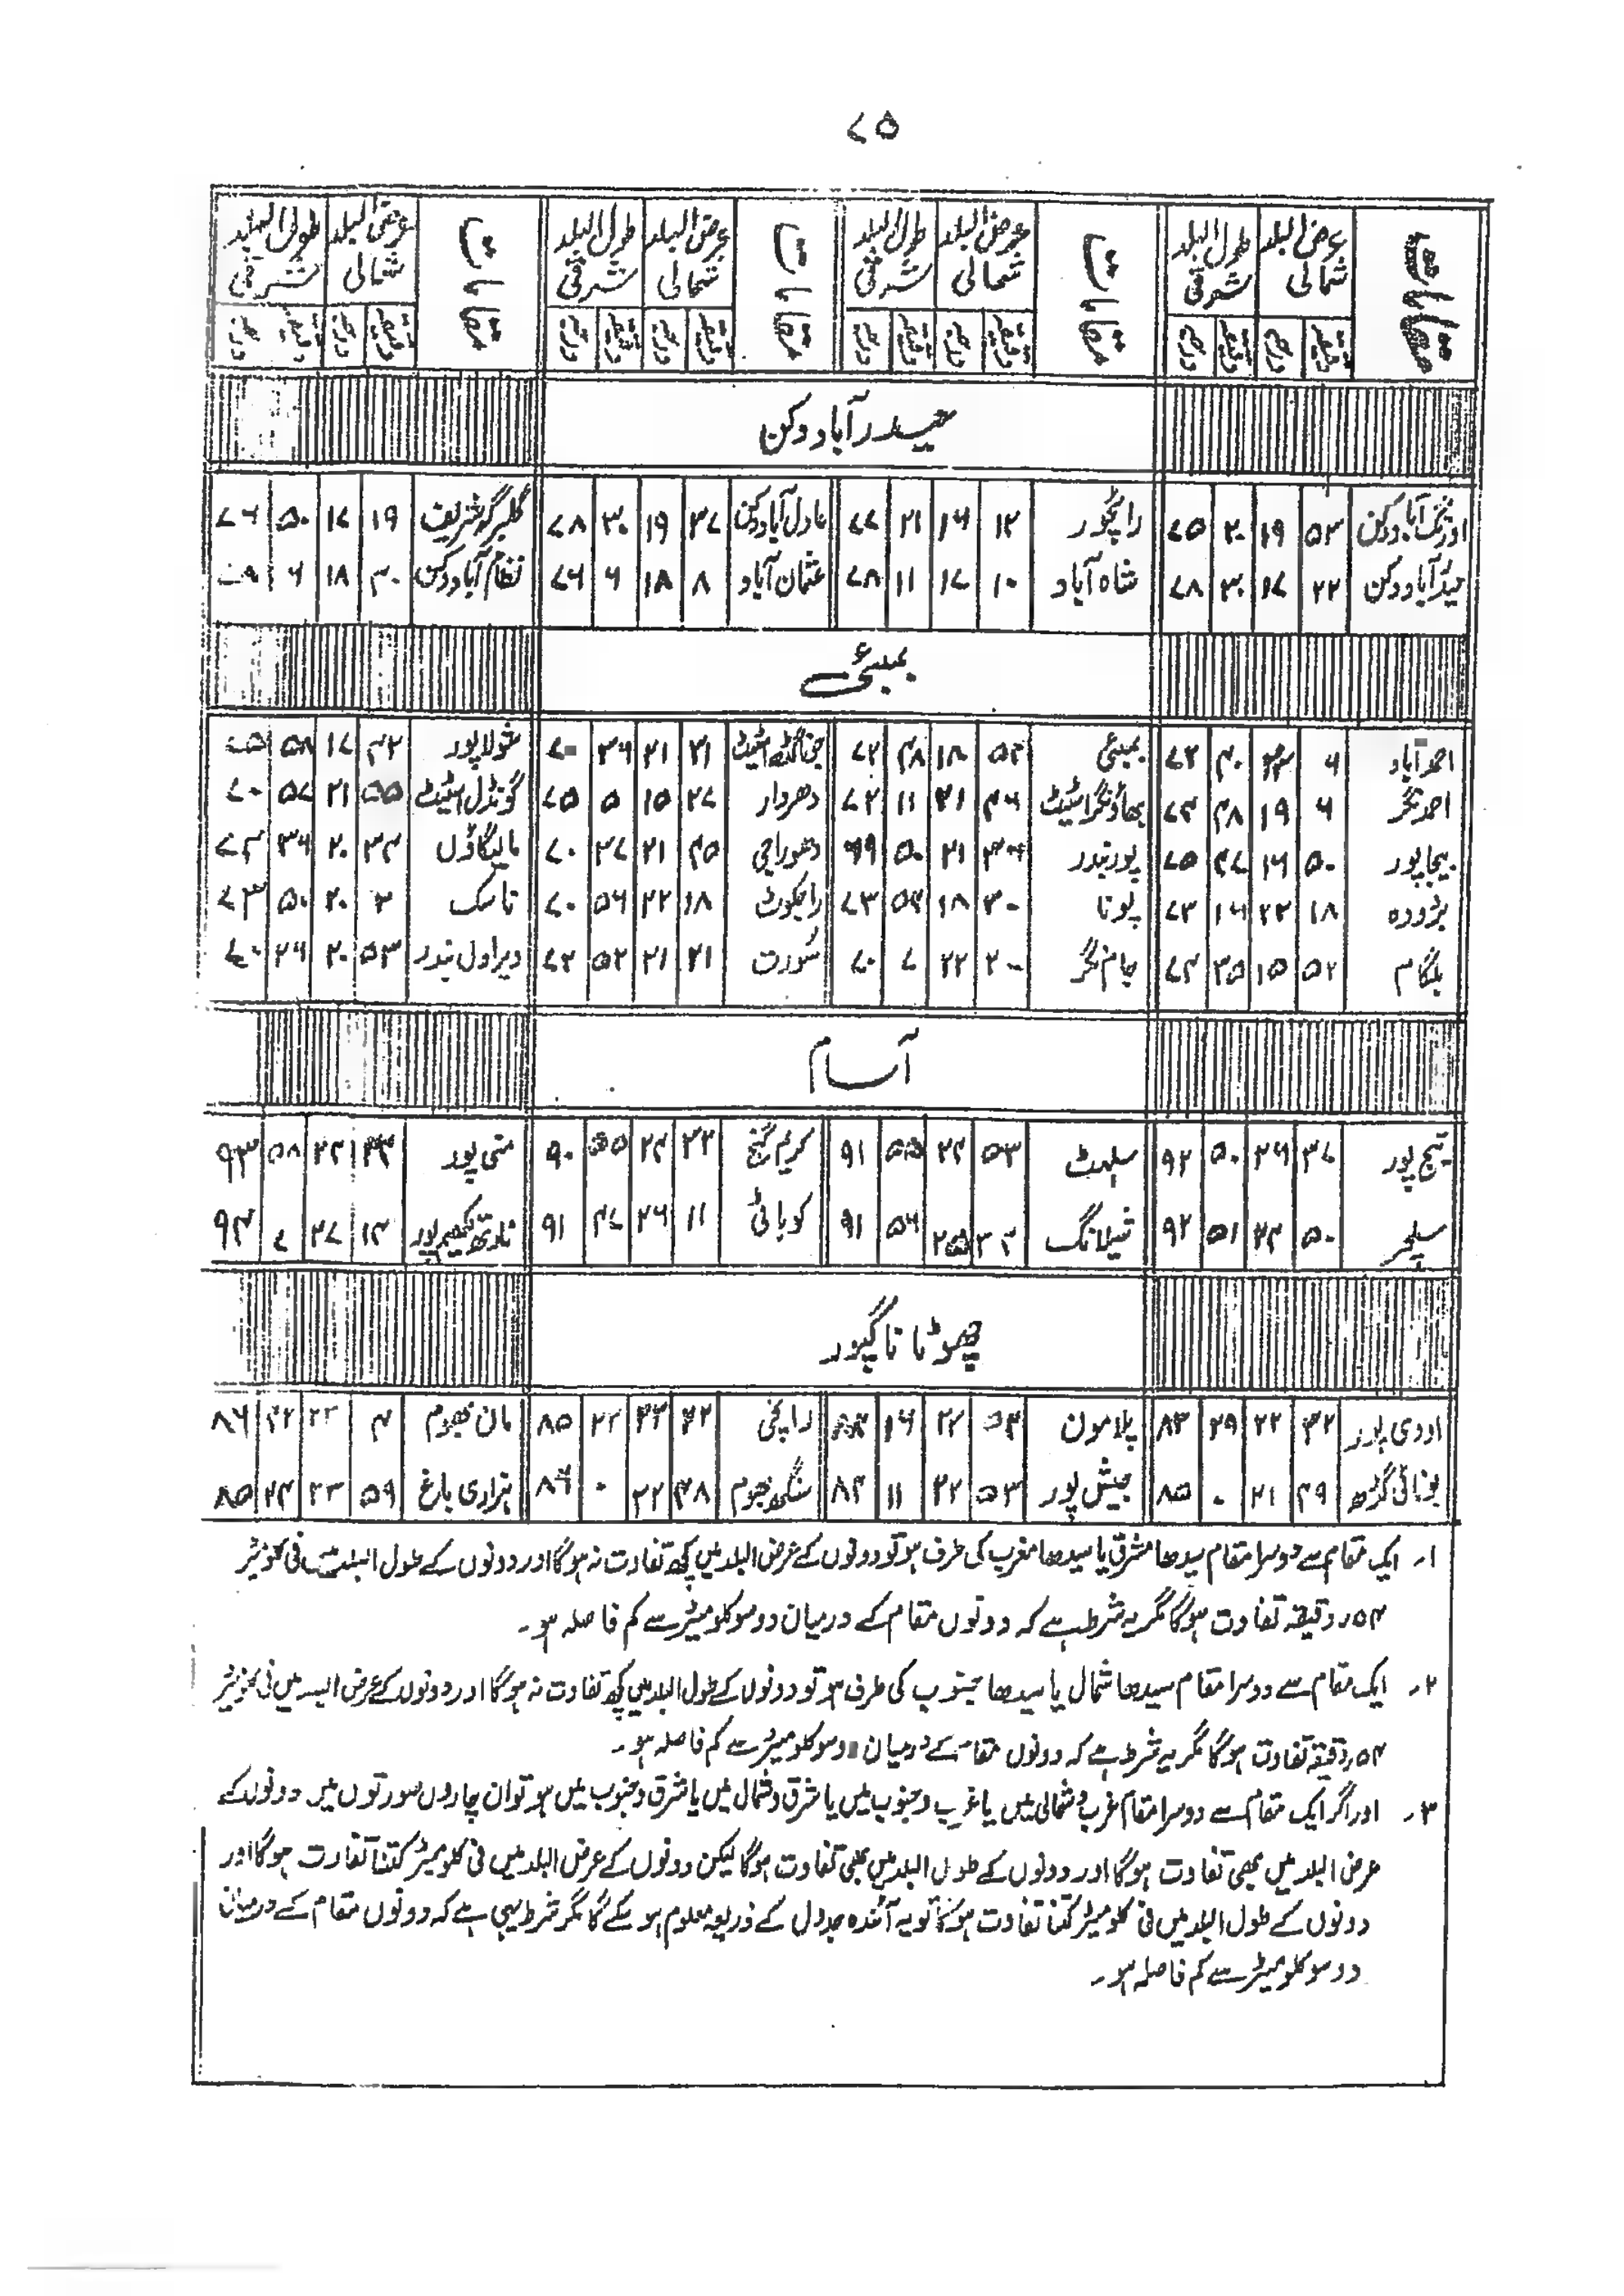 ۷۵
مقامات عرض البلد شمالی طول البلد شرقی مقامات عرض البلد شمالی طول البلد شرقی مقامات عرض البلد شمالی طول البلد شرقی مقامات عرض البلد شمالی طول البلد شرقی
دقیقہ درجہ دقیقہ درجہ دقیقہ درجہ دقیقہ درجہ دقیقہ درجہ دقیقہ درجہ دقیقہ درجہ دقیقہ درجہ
حیدرآباد دکن
اورنگ آباد دکن ۵۳ ۱۹ ۲۰ ۷۵ رائچور ۱۲ ۱۶ ۲۱ ۷۷ عادل آباد دکن ۳۷ ۱۹ ۳۰ ۷۸ گلبرگہ شریف ۱۹ ۱۷ ۵۰ ۷۶
حیدرآباد دکن ۲۲ ۱۷ ۳۰ ۷۸ شاہ آباد ۱۰ ۱۷ ۱۱ ۷۸ عثمان آباد ۸ ۱۸ ۶ ۷۶ نظام آباد دکن ۴۰ ۱۸ ۶
بمبئی
احمد آباد ۶ ۴۰ ۷۲ بمبئی ۵۴ ۱۸ ۴۸ ۷۲ جوناگڈھ اسٹیٹ ۳۱ ۲۱ ۳۶ شولاپور ۴۲ ۱۷ ۵۸
احمد نگر ۶ ۱۹ ۴۸ ۷۴ بھاؤنگر اسٹیٹ ۴۶ ۲۱ ۱۱ ۷۲ دھردار ۲۷ ۱۵ ۵ ۷۵ گونڈل اسٹیٹ ۵۵ ۲۱ ۵۷ ۷۰
بیجاپور ۵۰ ۱۶ ۴۷ ۷۵ پوربندر ۲۱ ۵۰ ۶۹ دھوراجی ۴۵ ۲۱ ۳۷ ۷۰ مالیگاؤں ۳۴ ۲۰ ۳۶ ۷۴
بڑودہ ۱۸ ۲۲ ۱۶ ۷۳ پونا ۳۰ ۱۸ ۵۳ ۷۳ راجکوٹ ۱۸ ۲۲ ۵۶ ۷۰ ناسک ۲ ۲۰ ۵۰ ۷۳
بلگام ۵۲ ۱۵ ۳۵ ۷۴ جام نگر ۲۰ ۲۲ ۷ ۷۰ سورت ۲۱ ۲۱ ۵۲ ۷۲ ویراول بندر ۵۳ ۲۰ ۲۶ ۷۰
آسام
تیج پور ۳۷ ۲۶ ۵۰ ۹۲ سلہٹ ۵۳ ۲۴ ۵۵ ۹۱ کریم گنج ۲۲ ۲۴ ۵۵ ۹۰ منی پور ۲۴ ۵۸ ۹۳
سلچر ۵۰ ۲۴ ۵۱ ۹۲ شیلانگ ۳۴ ۲۵ ۵۶ ۹۱ گوہاٹی ۱۱ ۲۶ ۴۷ ۹۱ نارتھ لکھیم پور ۱۴ ۲۷ ۷ ۹۴
چھوٹا ناگپور
اودی پور ۳۲ ۲۲ ۲۹ ۸۳ پلامون ۵۴ ۲۳ ۱۶ ۸۴ رانچی ۲۲ ۲۳ ۲۳ ۸۵ مان بھوم ۴ ۲۳ ۴۲ ۸۶
بونائی گڑھ ۴۹ ۲۱ ۰ ۸۵ جیش پور ۵۳ ۲۲ ۱۱ ۸۴ سنگھ بھوم ۳۸ ۲۲ ۰ ۸۶ ہزاری باغ ۵۹ ۲۳ ۲۴ ۸۵
۱۔ ایک مقام سے دوسرا مقام سیدھا مشرق یا سیدھا مغرب کی طرف ہو تو دونوں کے عرض البلد میں کچھ تفاوت نہ ہوگا اور دونوں کے طول البلد میں فی کلومیٹر
۵۴ء دقیقہ تفاوت ہوگا مگر یہ شرط ہے کہ دونوں مقام کے درمیان دو سو کلومیٹر سے کم فاصلہ ہو۔
۲۔ ایک مقام سے دوسرا مقام سیدھا شمال یا سیدھا جنوب کی طرف ہو تو دونوں کے طول البلد میں کچھ تفاوت نہ ہوگا اور دونوں کے عرض البلد میں فی کلومیٹر
۵۴ء دقیقہ تفاوت ہوگا مگر یہ شرط ہے کہ دونوں مقام کے درمیان دو سو کلومیٹر سے کم فاصلہ ہو۔
۳۔ اور اگر ایک مقام سے دوسرا مقام غرب و شمال میں یا غرب و جنوب میں یا شرق و شمال میں یا شرق و جنوب میں ہو تو ان چاروں صورتوں میں دونوں کے
عرض البلد میں بھی تفاوت ہوگا اور دونوں کے طول البلد میں بھی تفاوت ہوگا لیکن دونوں کے عرض البلد میں فی کلومیٹر کتنا تفاوت ہوگا اور
دونوں کے طول البلد میں فی کلومیٹر کتنا تفاوت ہوگا تو یہ آئندہ جدول کے ذریعہ معلوم ہو سکے گا مگر شرط یہی ہے کہ دونوں مقام کے درمیان
دو سو کلومیٹر سے کم فاصلہ ہو۔